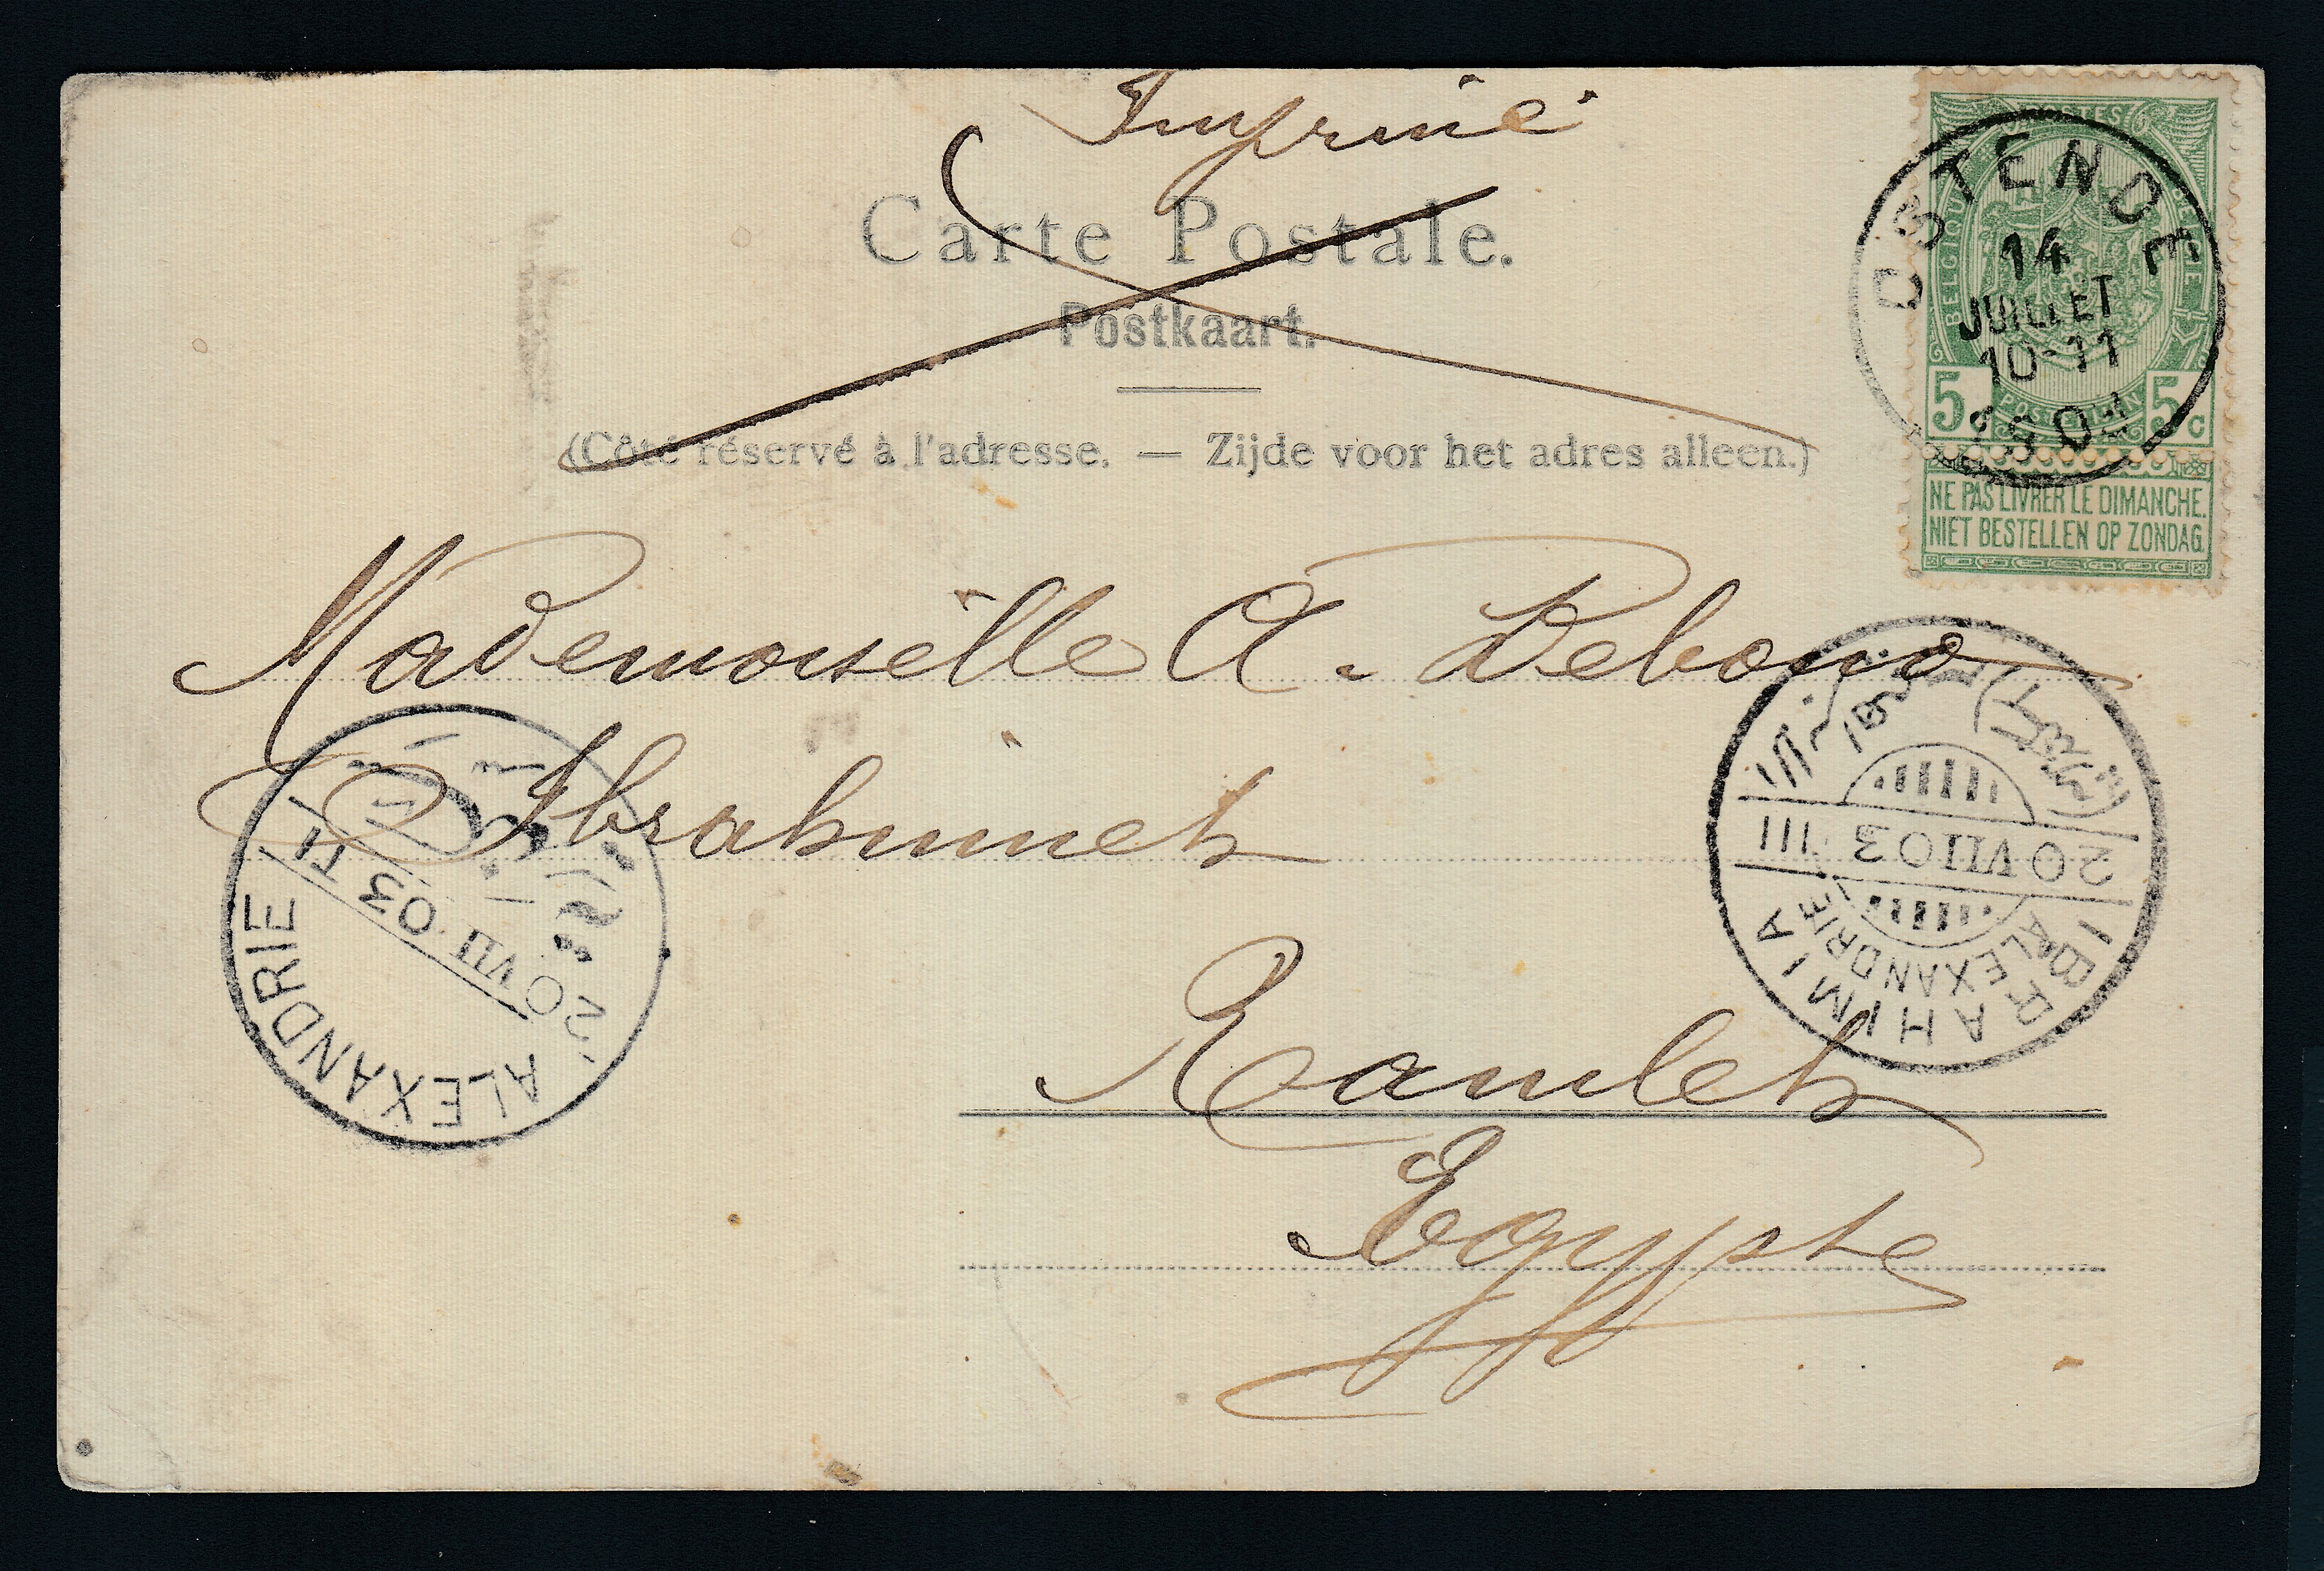 Imprimé
Carte Postale.
Postkaart.
(Côté réservé à l'adresse. — Zijde voor het adres alleen.)
POSTES
BELGIQUE BELGIË
POSTERIJEN
5c 5c
NE PAS LIVRER LE DIMANCHE.
NIET BESTELLEN OP ZONDAG.
OSTENDE
14
JUILLET
10-11
1903
Mademoiselle A. Debono
Ibrahimieh
Ramleh
Egypte
ALEXANDRIE
20 VII 03 TI
20 VII 03 III
IBRAHIMIA
ALEXANDRIE